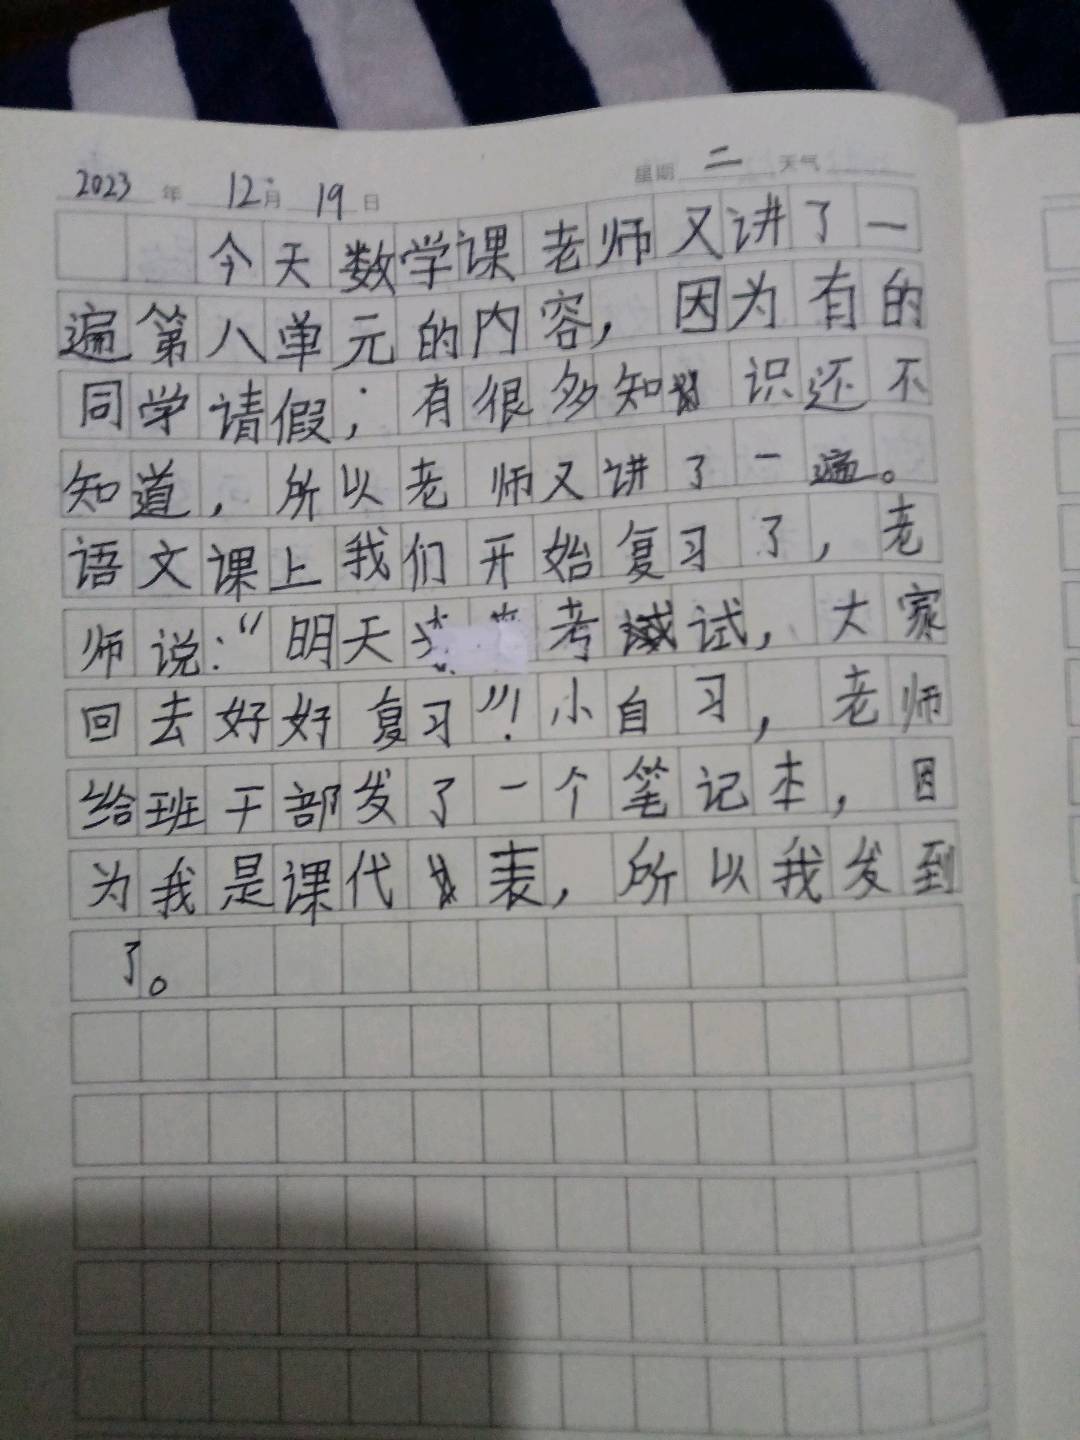 2023 年 12 月 19 日 星期 二 天气
今天数学课老师又讲了一
遍第八单元的内容，因为有的
同学请假；有很多知识还不
知道，所以老师又讲了一遍。
语文课上我们开始复习了，老
师说：“明天考试，大家
回去好好复习”！小自习，老师
给班干部发了一个笔记本，因
为我是课代表，所以我发到
了。